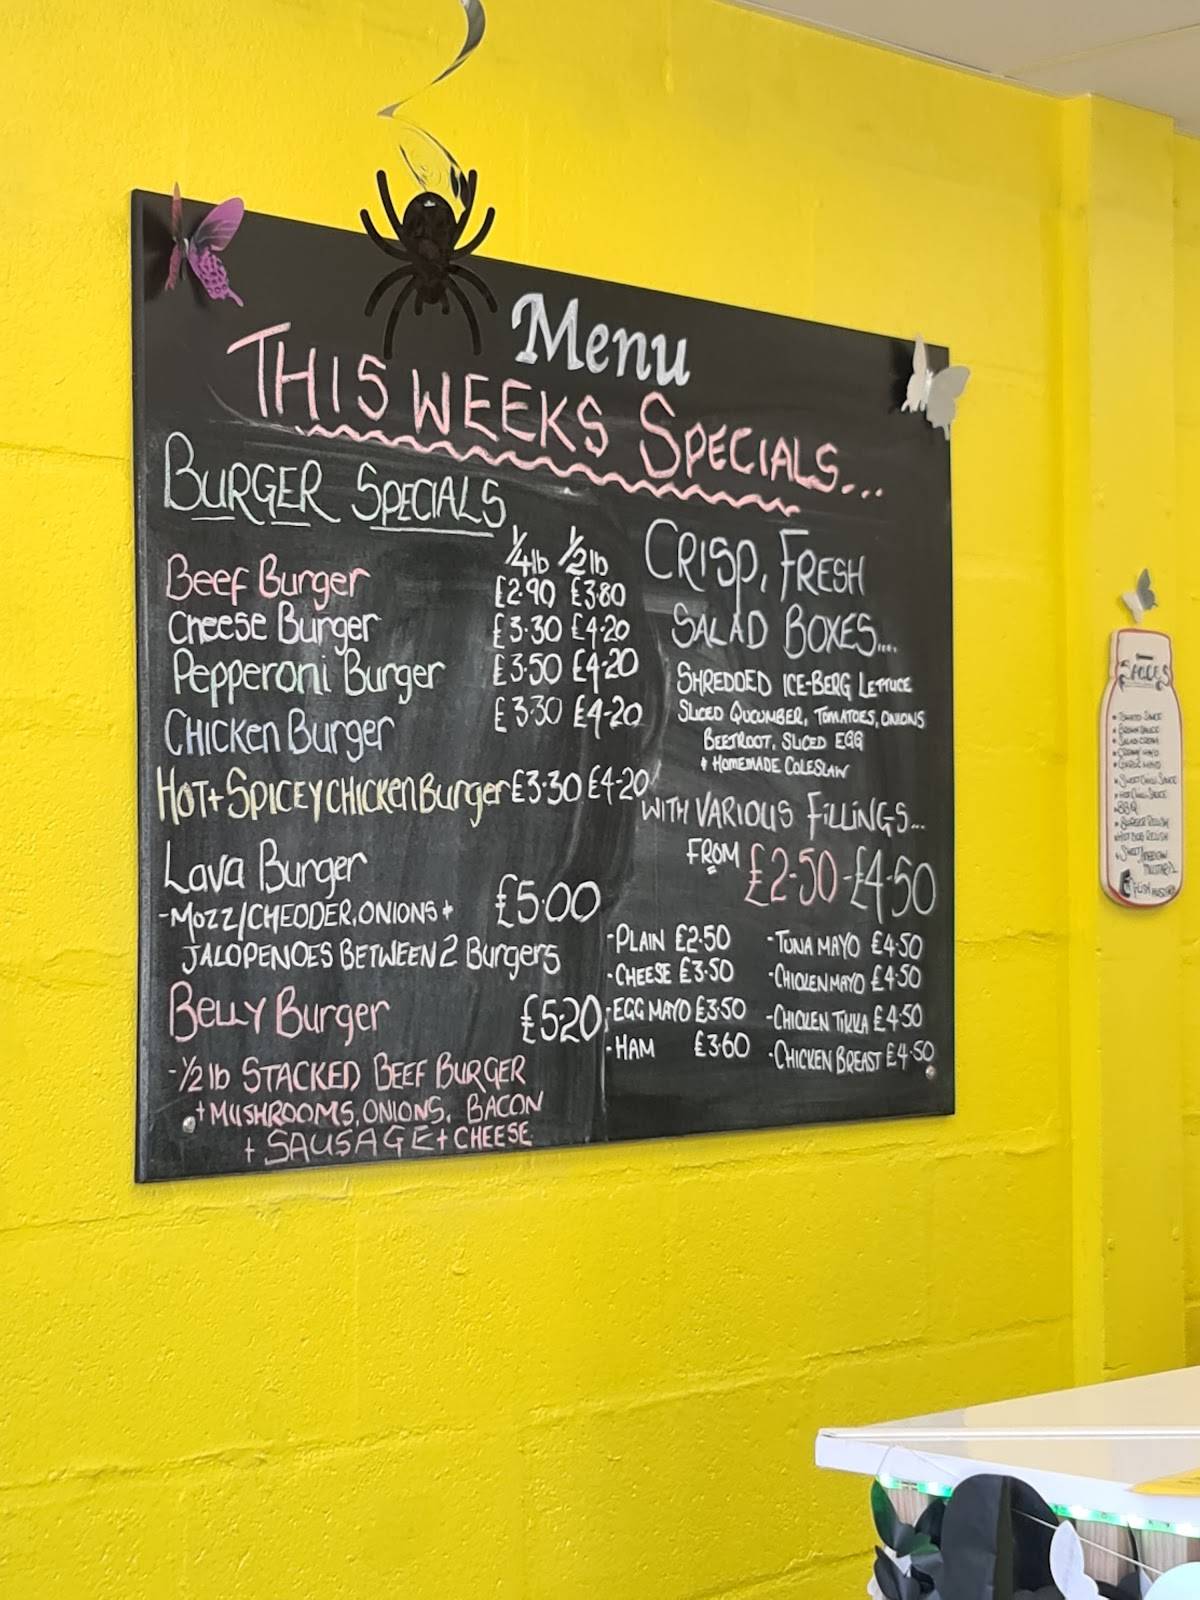 Menu
THIS WEEKS SPECIALS...
BURGER SPECIALS
1/4lb 1/2lb
Beef Burger £2.90 £3.80
Cheese Burger £3.30 £4.20
Pepperoni Burger £3.50 £4.20
CHICKEN Burger £3.30 £4.20
HOT + SPICEY CHICKEN Burger £3.30 £4.20
Lava Burger £5.00
- MOZZ/CHEDDER, ONIONS +
JALOPENOES BETWEEN 2 Burgers
BELLY Burger £5.20
- 1/2 lb STACKED BEEF BURGER
+ MUSHROOMS, ONIONS, BACON
+ SAUSAGE + CHEESE
CRISP, FRESH
SALAD BOXES....
SHREDDED ICE-BERG LETTUCE
SLICED QUCUMBER, TOMATOES, ONIONS
BEETROOT, SLICED EGG
+ HOMEMADE COLESLAW
WITH VARIOUS FILLINGS...
FROM £2.50 - £4.50
- PLAIN £2.50
- CHEESE £3.50
- EGG MAYO £3.50
- HAM £3.60
- TUNA MAYO £4.50
- CHICKEN MAYO £4.50
- CHICKEN TIKKA £4.50
- CHICKEN BREAST £4.50
SAUCES
TOMATO SAUCE
BROWN SAUCE
SALAD CREAM
GARLIC MAYO
SWEET CHILLI SAUCE
HOT CHILLI SAUCE
BBQ
BURGER RELISH
HOT DOG RELISH